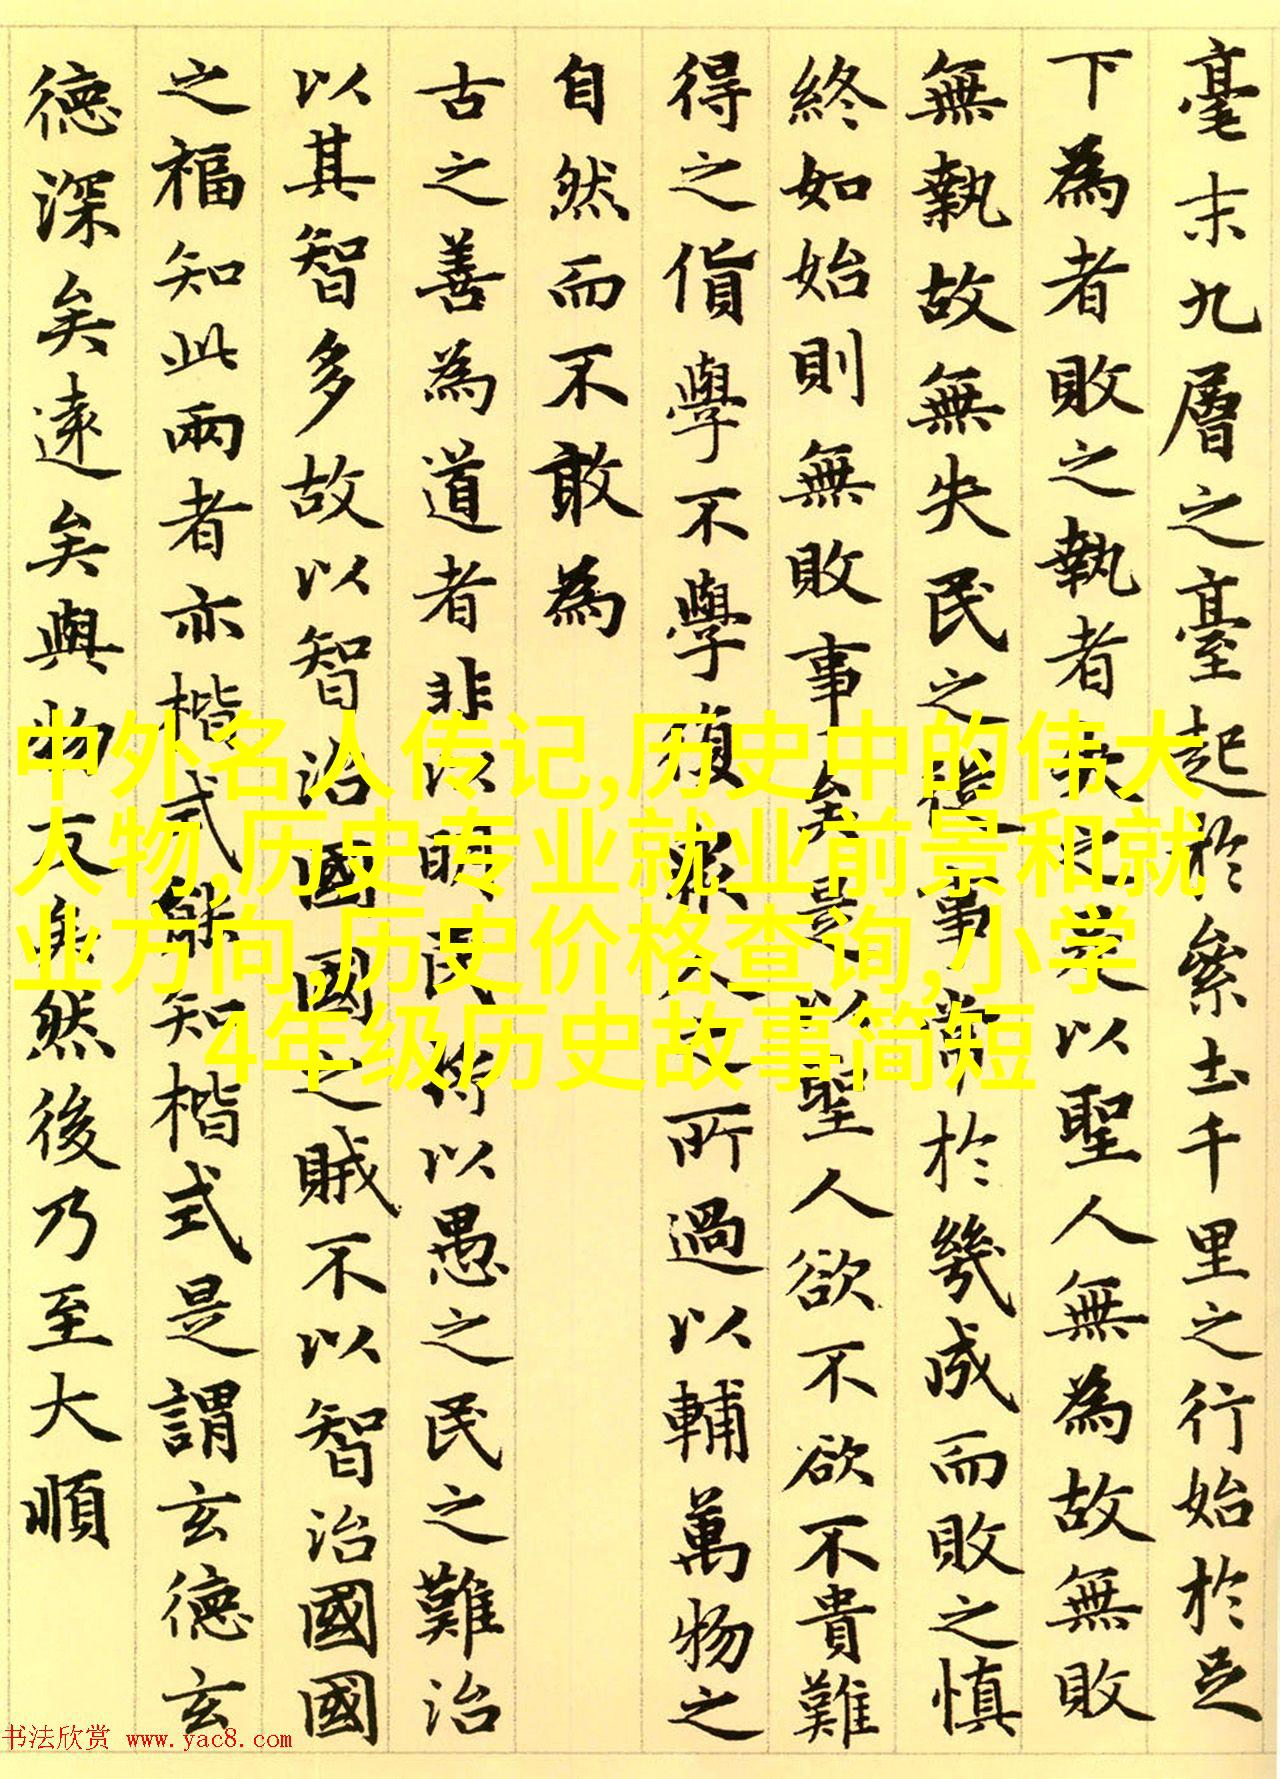 毫末九層之臺起於絫土千里之行始於足
下為者敗之執者失之是以聖人無為故無敗
無執故無失民之從事常於幾成而敗之慎
終如始則無敗事矣是以聖人欲不欲不貴難
得之貨學不學復眾人之所過以輔萬物之
自然而不敢為
古之善為道者非以明民將以愚之民之難治
以其智多故以智治國國之賊不以智治國國
之福知此兩者亦楷式能知楷式是謂玄德玄
德深矣遠矣與物反矣然後乃至大順
中外名人传记,历史中的伟大
人物,历史专业就业前景和就
业方向,历史价格查询,小学
4年级历史故事简短
书法欣赏 www.yac8.com